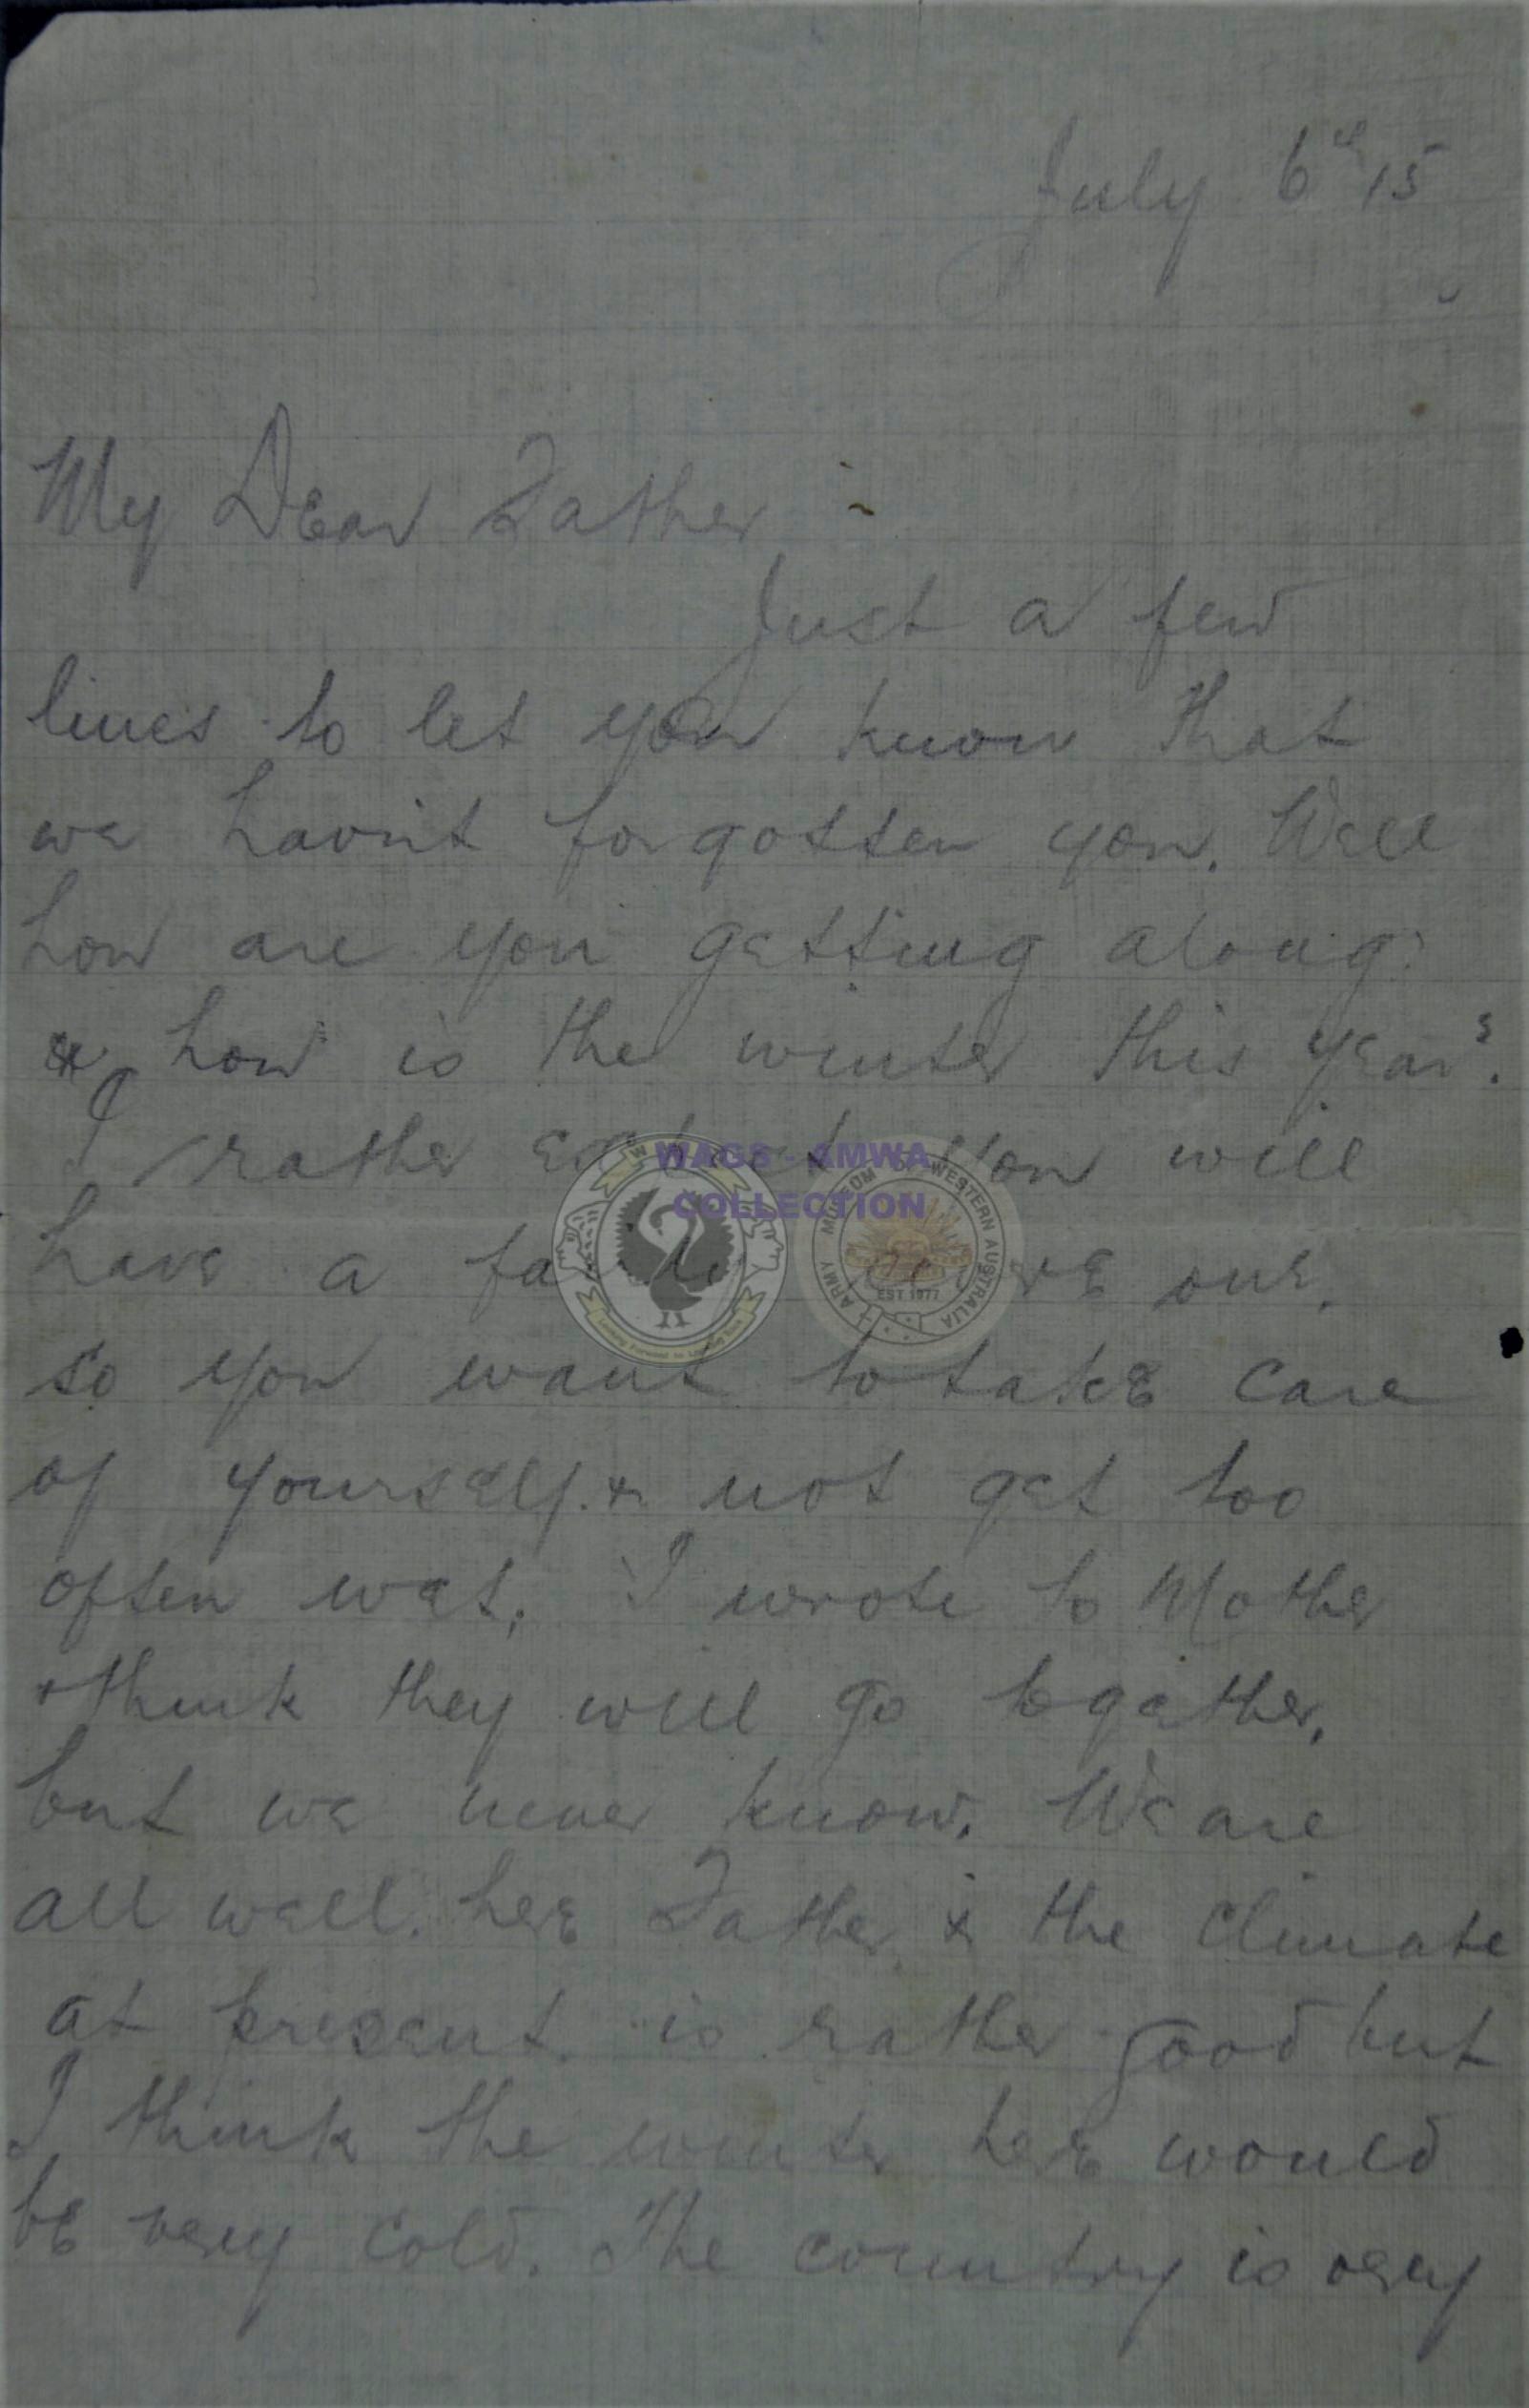 July 6th 15
My Dear Father
Just a few
lines to let you know that
we havn't forgotten you. Well
how are you getting along
& how is the winter this year?
I rather expect you will
have a severe one.
so you want to take care
of yourself. & not get too
often wet. I wrote to Mother
& think they will go together.
but we never know. We are
all well. here Father & the Climate
at present is rather good but
I think the winter here would
be very cold. The country is very
WAGS - AMWA
COLLECTION
ARMY MUSEUM OF WESTERN AUSTRALIA
EST 1977